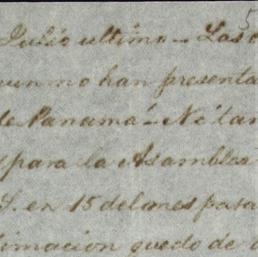 5
Julio ultimo - Los
aun no han presenta
de Panamá - Notan
para la Asamblea
S. en 15 del mes pasa
timacion quedo de